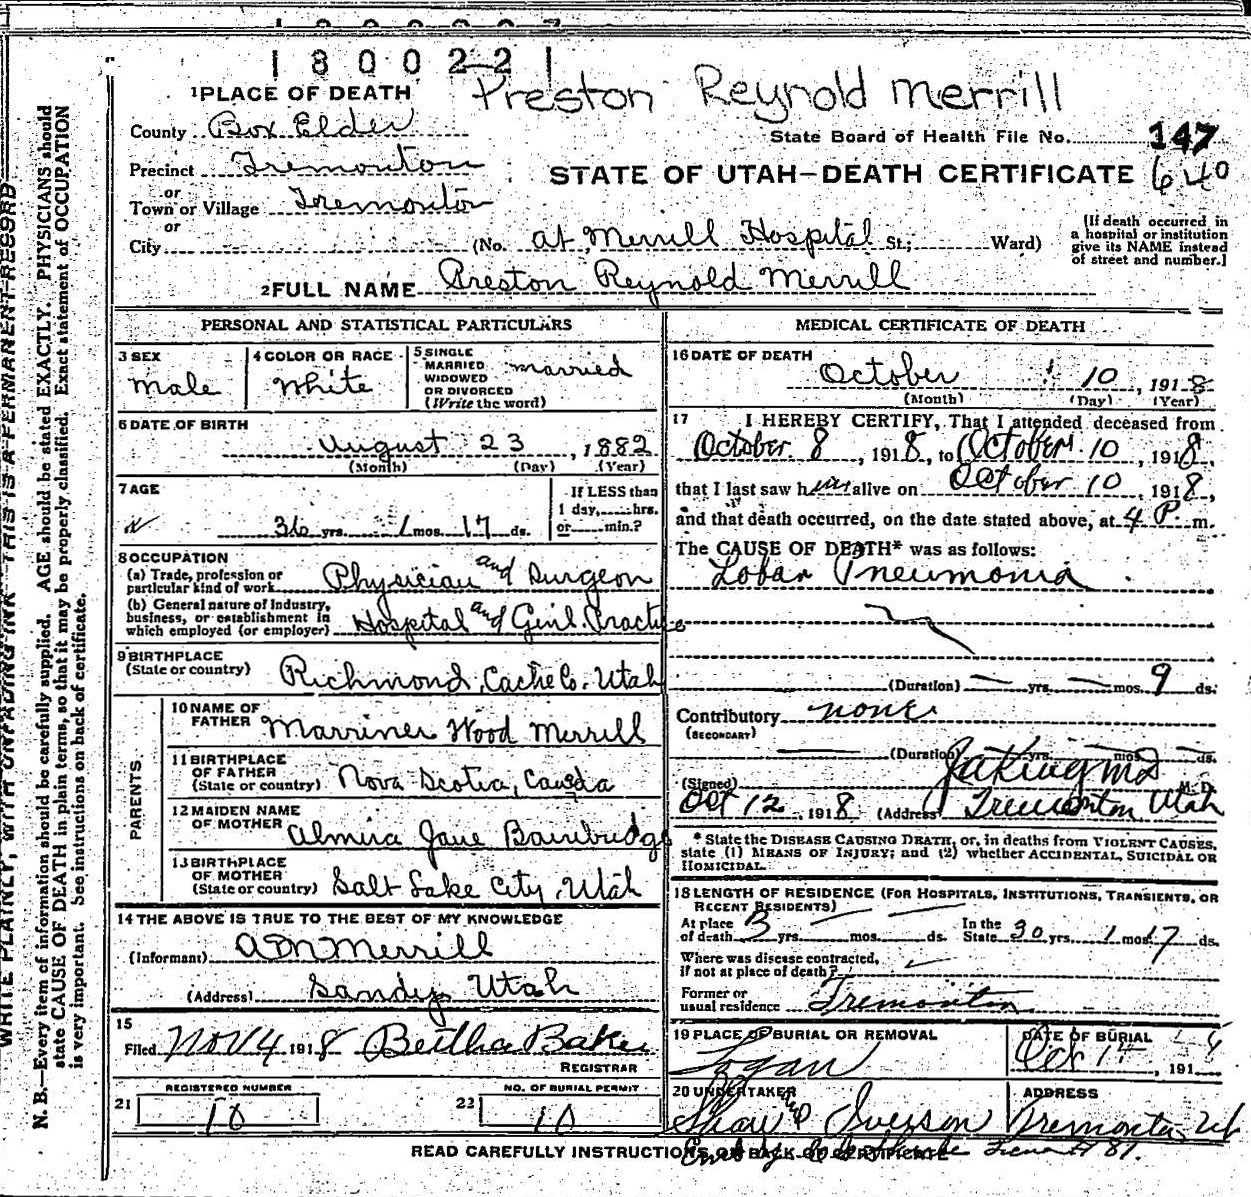 1800221
Preston Reynold Merrill
1 PLACE OF DEATH
County Box Elder
State Board of Health File No. 147
Precinct Tremonton
STATE OF UTAH—DEATH CERTIFICATE 640
or
Town or Village Tremonton
or
City (No. at Merrill Hospital St.; Ward)
(If death occurred in a hospital or institution give its NAME instead of street and number.]
2 FULL NAME Preston Reynold Merrill
PERSONAL AND STATISTICAL PARTICULARS
3 SEX
male
4 COLOR OR RACE
White
5 SINGLE
MARRIED
WIDOWED
OR DIVORCED
(Write the word)
married
6 DATE OF BIRTH
August 23, 1882
(Month) (Day) (Year)
7 AGE
36 yrs. 1 mos. 17 ds.
If LESS than
1 day, hrs.
or min.?
8 OCCUPATION
(a) Trade, profession or
particular kind of work Physician and Surgeon
(b) General nature of Industry,
business, or establishment in
which employed (or employer) Hospital and Genl. Practice
9 BIRTHPLACE
(State or country) Richmond, Cache Co. Utah
PARENTS
10 NAME OF
FATHER Marriner Wood Merrill
11 BIRTHPLACE
OF FATHER
(State or country) Nova Scotia, Canada
12 MAIDEN NAME
OF MOTHER Almira Jane Bainbridge
13 BIRTHPLACE
OF MOTHER
(State or country) Salt Lake City, Utah
14 THE ABOVE IS TRUE TO THE BEST OF MY KNOWLEDGE
(Informant) A D N Merrill
(Address) Sandy, Utah
15
Filed Nov 4 1918 Bertha Baker
REGISTRAR
REGISTERED NUMBER
21 10
NO. OF BURIAL PERMIT
22 10
MEDICAL CERTIFICATE OF DEATH
16 DATE OF DEATH
October 10, 1918
(Month) (Day) (Year)
17 I HEREBY CERTIFY, That I attended deceased from
October 8, 1918, to October 10, 1918,
that I last saw him alive on October 10, 1918,
and that death occurred, on the date stated above, at 4 P m.
The CAUSE OF DEATH* was as follows:
Lobar Pneumonia
(Duration) yrs. mos. 9 ds.
Contributory none
(SECONDARY)
(Duration) yrs. mos. ds.
(Signed) M.D.
Oct 12, 1918 (Address Tremonton Utah
* State the DISEASE CAUSING DEATH, or, in deaths from VIOLENT CAUSES,
state (1) MEANS OF INJURY; and (2) whether ACCIDENTAL, SUICIDAL OR
HOMICIDAL.
18 LENGTH OF RESIDENCE (FOR HOSPITALS, INSTITUTIONS, TRANSIENTS, OR
RECENT RESIDENTS)
At place
of death 3 yrs. mos. ds.
In the
State 30 yrs. 1 mos. 17 ds.
Where was disease contracted,
if not at place of death?
Former or
usual residence Tremonton
19 PLACE OF BURIAL OR REMOVAL
Logan
DATE OF BURIAL
Oct 14, 191
20 UNDERTAKER
Shaw and Iverson
ADDRESS
Tremonton Ut
READ CAREFULLY INSTRUCTIONS ON BACK OF CERTIFICATE
WRITE PLAINLY, WITH UNFADING INK—THIS IS A PERMANENT RECORD
N. B.—Every item of information should be carefully supplied. AGE should be stated EXACTLY. PHYSICIANS should
state CAUSE OF DEATH in plain terms, so that it may be properly classified. Exact statement of OCCUPATION
is very important. See instructions on back of certificate.